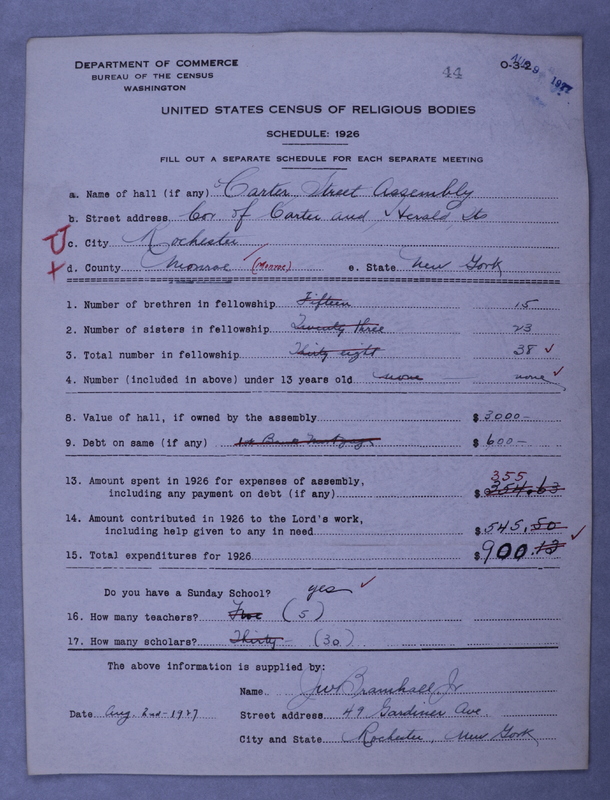 DEPARTMENT OF COMMERCE
BUREAU OF THE CENSUS
WASHINGTON
44
O-3-2
AUG 9 1927
UNITED STATES CENSUS OF RELIGIOUS BODIES
SCHEDULE: 1926
FILL OUT A SEPARATE SCHEDULE FOR EACH SEPARATE MEETING
a. Name of hall (if any) Carter Street Assembly
b. Street address Cor of Carter and Herald Sts
c. City Rochester
d. County Monroe (Monroe) e. State New York
1. Number of brethren in fellowship Fifteen 15
2. Number of sisters in fellowship Twenty three 23
3. Total number in fellowship Thirty eight 38 ✓
4. Number (included in above) under 13 years old none none ✓
8. Value of hall, if owned by the assembly $ 3000-
9. Debt on same (if any) $ 600-
13. Amount spent in 1926 for expenses of assembly, 355
including any payment on debt (if any) $ 354.63
14. Amount contributed in 1926 to the Lord's work,
including help given to any in need $ 545.50 ✓
15. Total expenditures for 1926 $ 900.13
Do you have a Sunday School? yes ✓
16. How many teachers? Five (5)
17. How many scholars? Thirty (30)
The above information is supplied by:
Name J W Bramhall Jr
Date Aug. 2nd-1927 Street address 49 Gardiner Ave.
City and State Rochester, New York